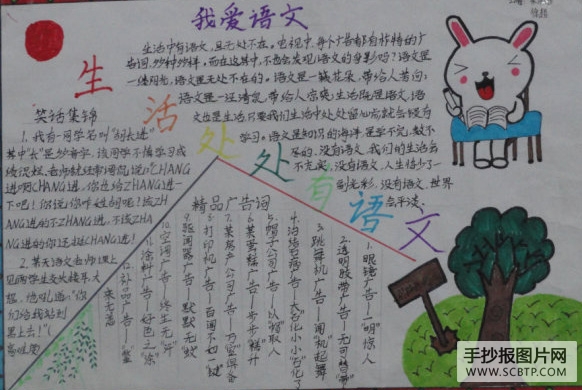 我爱语文
生活处处有语文
生活中有语文,且无处不在。电视中,每个广告都有独特的广
告词,妙种妙样,而在这其中,不也会发现语文的身影吗?语文是
一缕阳光,语文是无处不在的。语文是一簇花朵,带给人芳向;
语文是一汪清泉,带给人
文也是生活,只要我们生活中处处留心就会
学习。语文是知识的海洋,是学不完,数不
尽的,没有语文,我们的生活会
不充实,没有语文,人生恰少了一
到光彩,没有语文,世界
会平淡。
笑话集锦
1、我有一同学名叫“胡长进”
其中“长”是多音字,该同学不慎学习成
绩没
进啊CHANG进,你总给ZHANG进一
下吧!你说你咋姓胡呢!该ZH
ANG进的不ZHANG进,不该ZHA
NG进的你还胡CHANG进!
2、某天语文老师
见两学生
想,怒吼道:“你
们给我站到
黑上去!”(
精品广告词
1、眼镜广告—“明”惊人
2、透明胶带广告—无可替“带”
3、跳舞机广告—闻“机”起舞
4、治结石病广告—大“石”化小,小“石”化了
5、帽子公司广告—以“帽”取人
6、某蛋糕广告—步步“糕”升
7、某房产公司广告—万“室”俱备
8、打印机广告—百闻不如一“键”
9、驱蚊器广告—默默无“蚊”
10、空调广告—终生无“汗”
11、涂料广告—好色之“涂”
12、补品广告—“鳖”
来无恙
手抄报图片网
WWW.SCBTP.COM